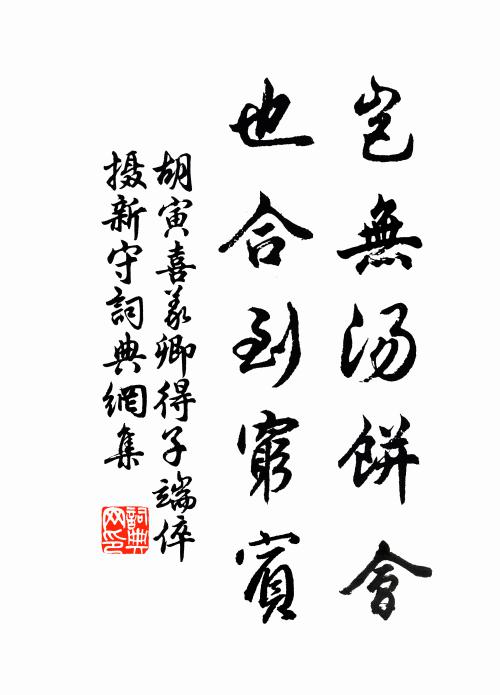 豈無湯餅會
也合到窮賓
胡寅喜義卿得子端倅
摄新守詞典網集
詞典网印